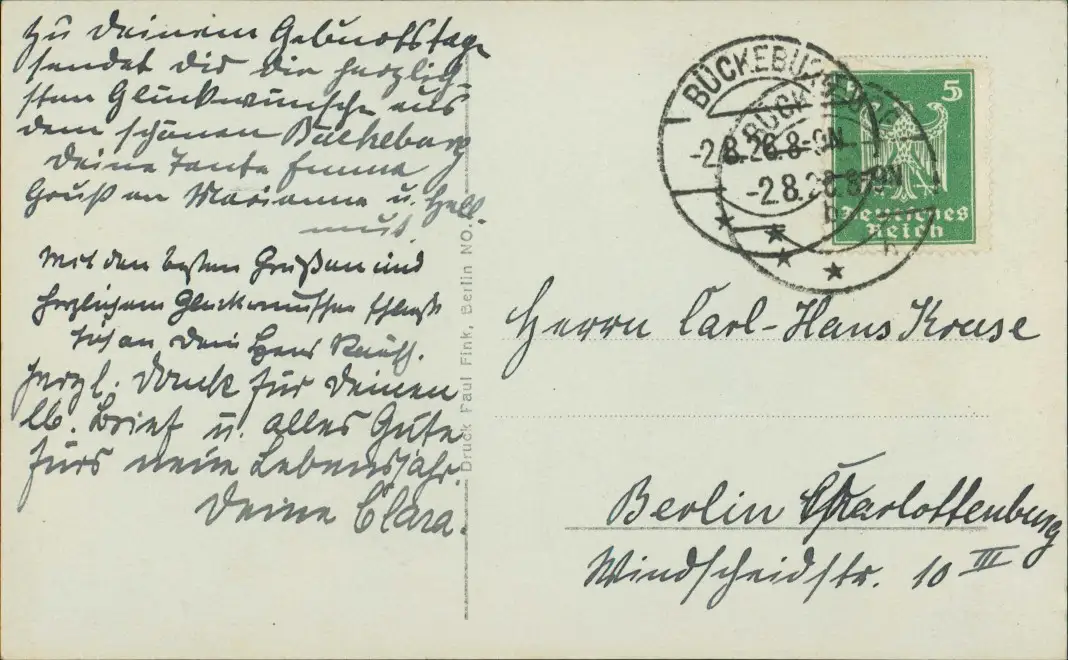 Zu deinem Geburtstage
sendet dir die herzlig
sten Glückwünsche aus
dem schönen Bückeburg
deine Tante Emma
Gruß an Marianne u. Hell-
mut
Mit den besten Grüßen und
herzlichem
dein Hans
herzl. Dank für deinen
lb. Brief u. alles Gute
fürs neue Lebensjahr.
Deine Clara.
Druck Paul Fink, Berlin NO.
BÜCKEBURG
-2.8.26.8-9N
BÜCK
-2.8.26.8-9N
b
5
Deutsches
Reich
Herrn Carl-Hans Kruse
Berlin Charlottenburg
Windscheidstr. 10 III